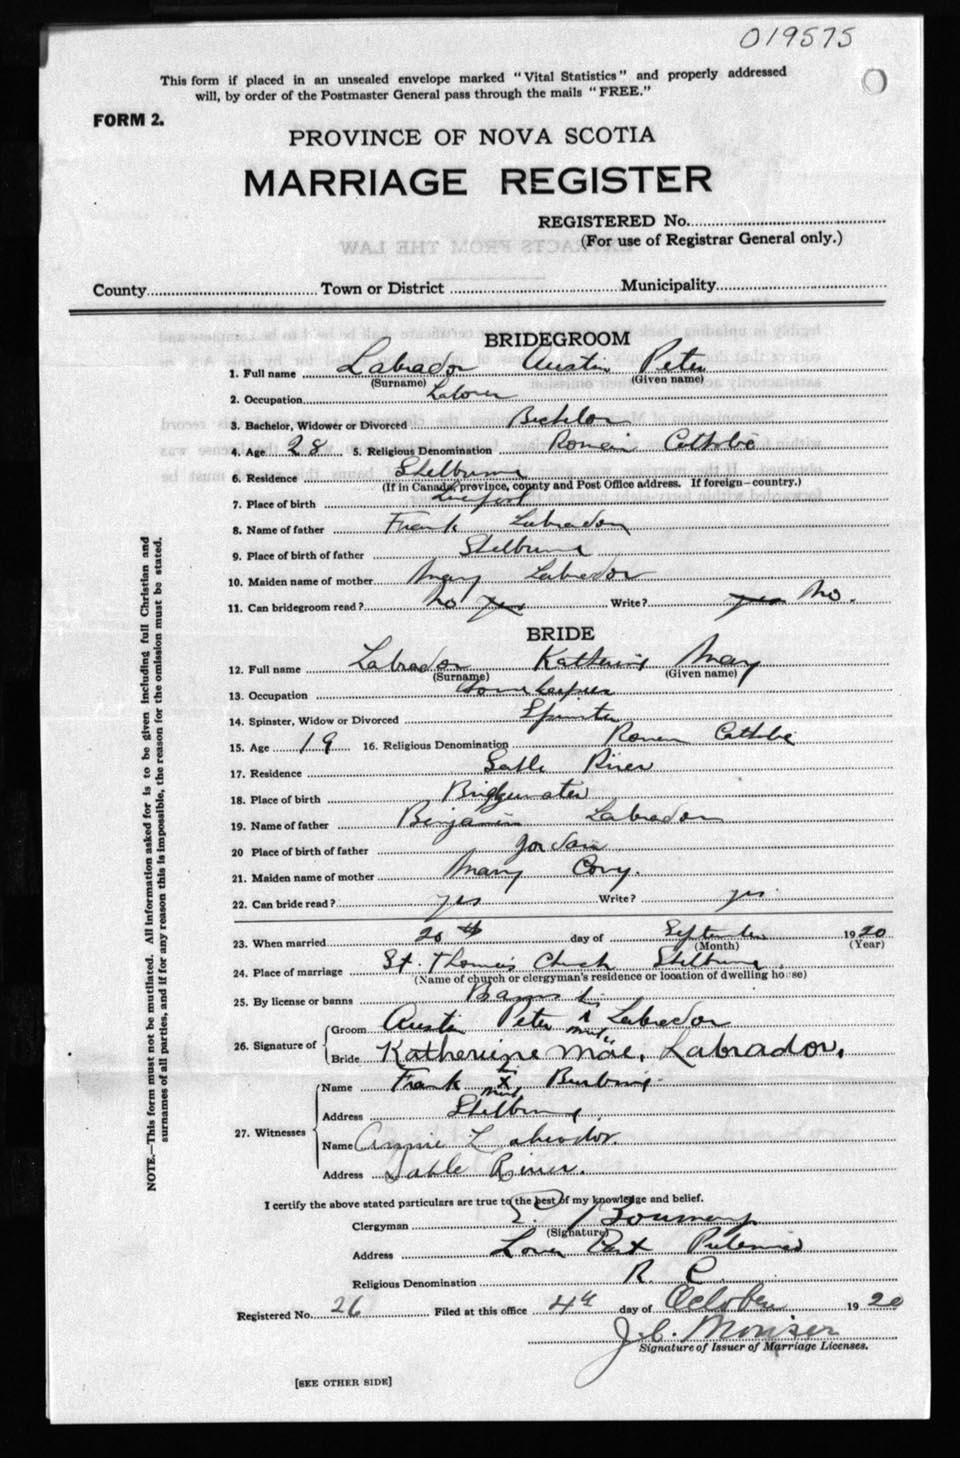 019575
This form if placed in an unsealed envelope marked "Vital Statistics" and properly addressed
will, by order of the Postmaster General pass through the mails "FREE."
FORM 2.
PROVINCE OF NOVA SCOTIA
MARRIAGE REGISTER
REGISTERED No.
(For use of Registrar General only.)
EXTRACTS FROM THE LAW
County Town or District Municipality
BRIDEGROOM
1. Full name Labrador Austin Peter
(Surname) (Given name)
2. Occupation Laborer
3. Bachelor, Widower or Divorced Bachelor
4. Age 28 5. Religious Denomination Roman Catholic
6. Residence Shelburne
(If in Canada, province, county and Post Office address. If foreign—country.)
7. Place of birth Liverpool
8. Name of father Frank Labrador
9. Place of birth of father Shelburne
10. Maiden name of mother Mary Labrador
11. Can bridegroom read? No yes Write? yes No.
BRIDE
12. Full name Labrador Katherine May
(Surname) (Given name)
13. Occupation housekeeper
14. Spinster, Widow or Divorced Spinster
15. Age 19 16. Religious Denomination Roman Catholic
17. Residence Sable River
18. Place of birth Bridgewater
19. Name of father Benjamin Labrador
20 Place of birth of father Jordan
21. Maiden name of mother Mary Cory.
22. Can bride read? yes Write? yes
23. When married 20th day of September 1920
(Month) (Year)
24. Place of marriage St. Thomas Church Shelburne
(Name of church or clergyman's residence or location of dwelling house)
25. By license or banns Banns
his
26. Signature of Groom Austin Peter x Labrador
mark
Bride Katherine Mae, Labrador,
his
27. Witnesses Name Frank x
mark
Address Shelburne,
Name Annie Labrador
Address Sable River.
I certify the above stated particulars are true to the best of my knowledge and belief.
Clergyman
(Signature)
Address Lower East Pubnico
Religious Denomination R. C.
Registered No. 26 Filed at this office 4th day of October 1920
J. C.
Signature of Issuer of Marriage Licenses.
[SEE OTHER SIDE]
NOTE.—This form must not be mutilated. All information asked for is to be given including full Christian and
surnames of all parties, and if for any reason this is impossible, the reason for the omission must be stated.